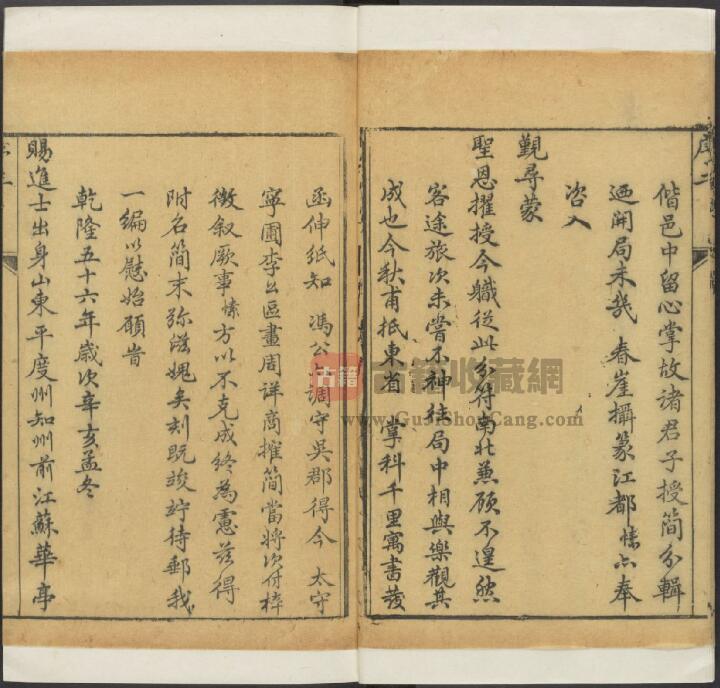 序二
偕邑中留心掌故諸君子授簡分輯
迺開局未幾 春崖攝篆江都愫亦奉
咨入
覲尋蒙
聖恩擢授今職從此分付南北兼顧不遑然
客途旅次未嘗不神往局中相與樂觀其
成也今秋甫抵東省 掌科千里寓書發
函伸紙知 馮公亦調守吳郡得今 太守
寧圃李公區畫周詳商搉簡當將次付梓
徵叙厥事愫方以不克成終為憲茲得
附名簡末弥滋媿矣刻既竣竚待郵我
一編以慰始願旹
乾隆五十六年歲次辛亥孟冬
賜進士出身山東平度州知州前江蘇華亭
古籍
古籍收藏網
www.GuJiShouCang.com